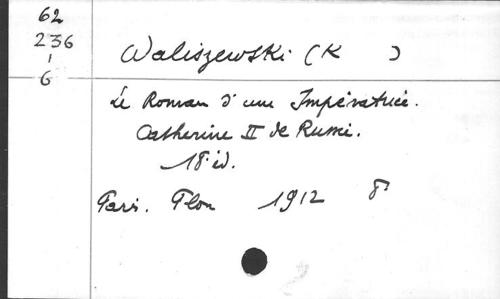 62
236
1
6
Waliszewski (K )
Le Roman d'une Impératrice.
Catherine II de Russie.
18 éd.
Paris. Plon 1912 8°
2